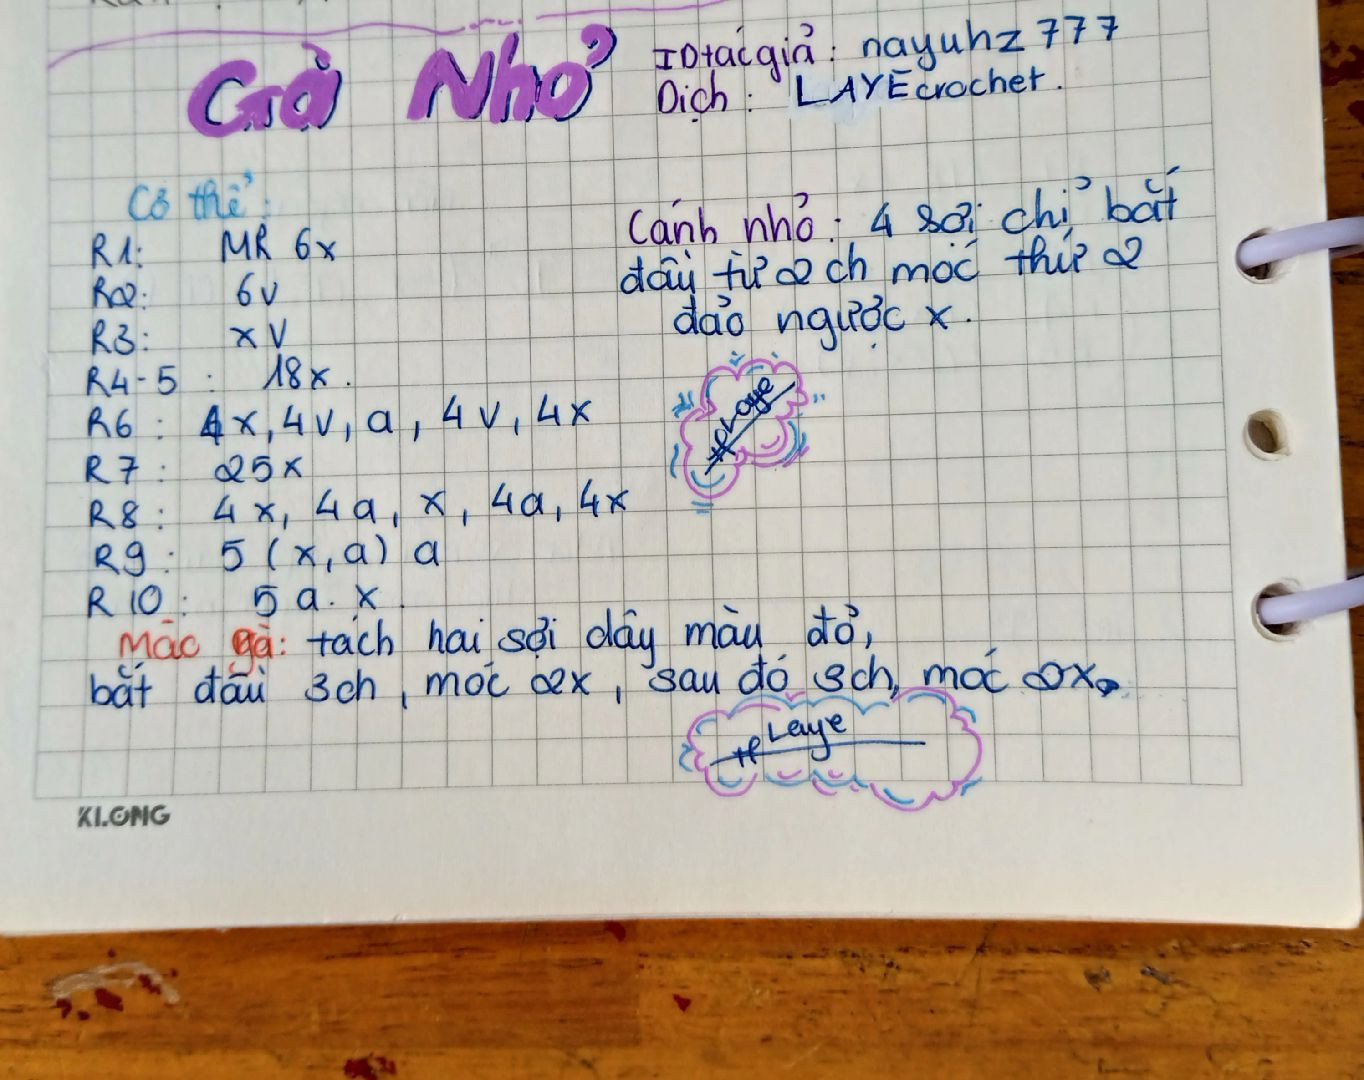 Gà Nhỏ
ID tác giả: nayuhz777
Dịch: LAYEcrochet.
Cơ thể:
R1: MR 6x
R2: 6v
R3: x v
R4-5: 18x.
R6: 4x, 4v, a, 4v, 4x
R7: 25x
R8: 4x, 4a, x, 4a, 4x
R9: 5 (x, a) a
R10: 5 a. x.
Mào gà: tách hai sợi dây màu đỏ,
bắt đầu 3ch, móc 2x, sau đó 3ch, móc 2x.
Cánh nhỏ: 4 sợi chỉ bắt
đầu từ 2 ch móc thứ 2
đảo ngược x.
#Laye
#Laye
KLONG